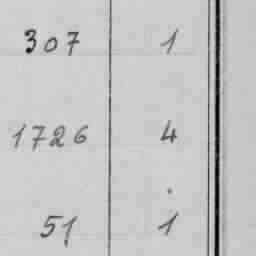 307 1
1726 4
51 1